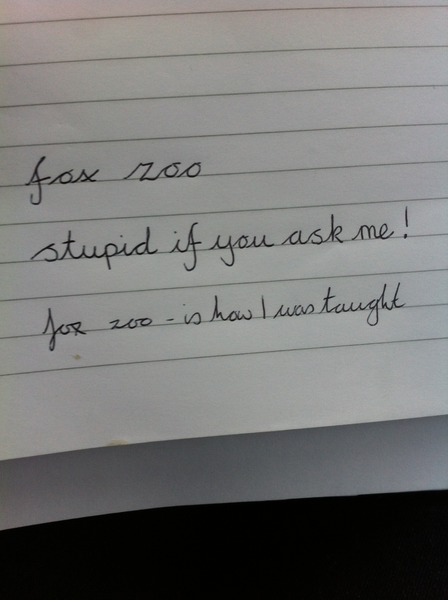 fox zoo
stupid if you ask me!
fox zoo - is how I was taught